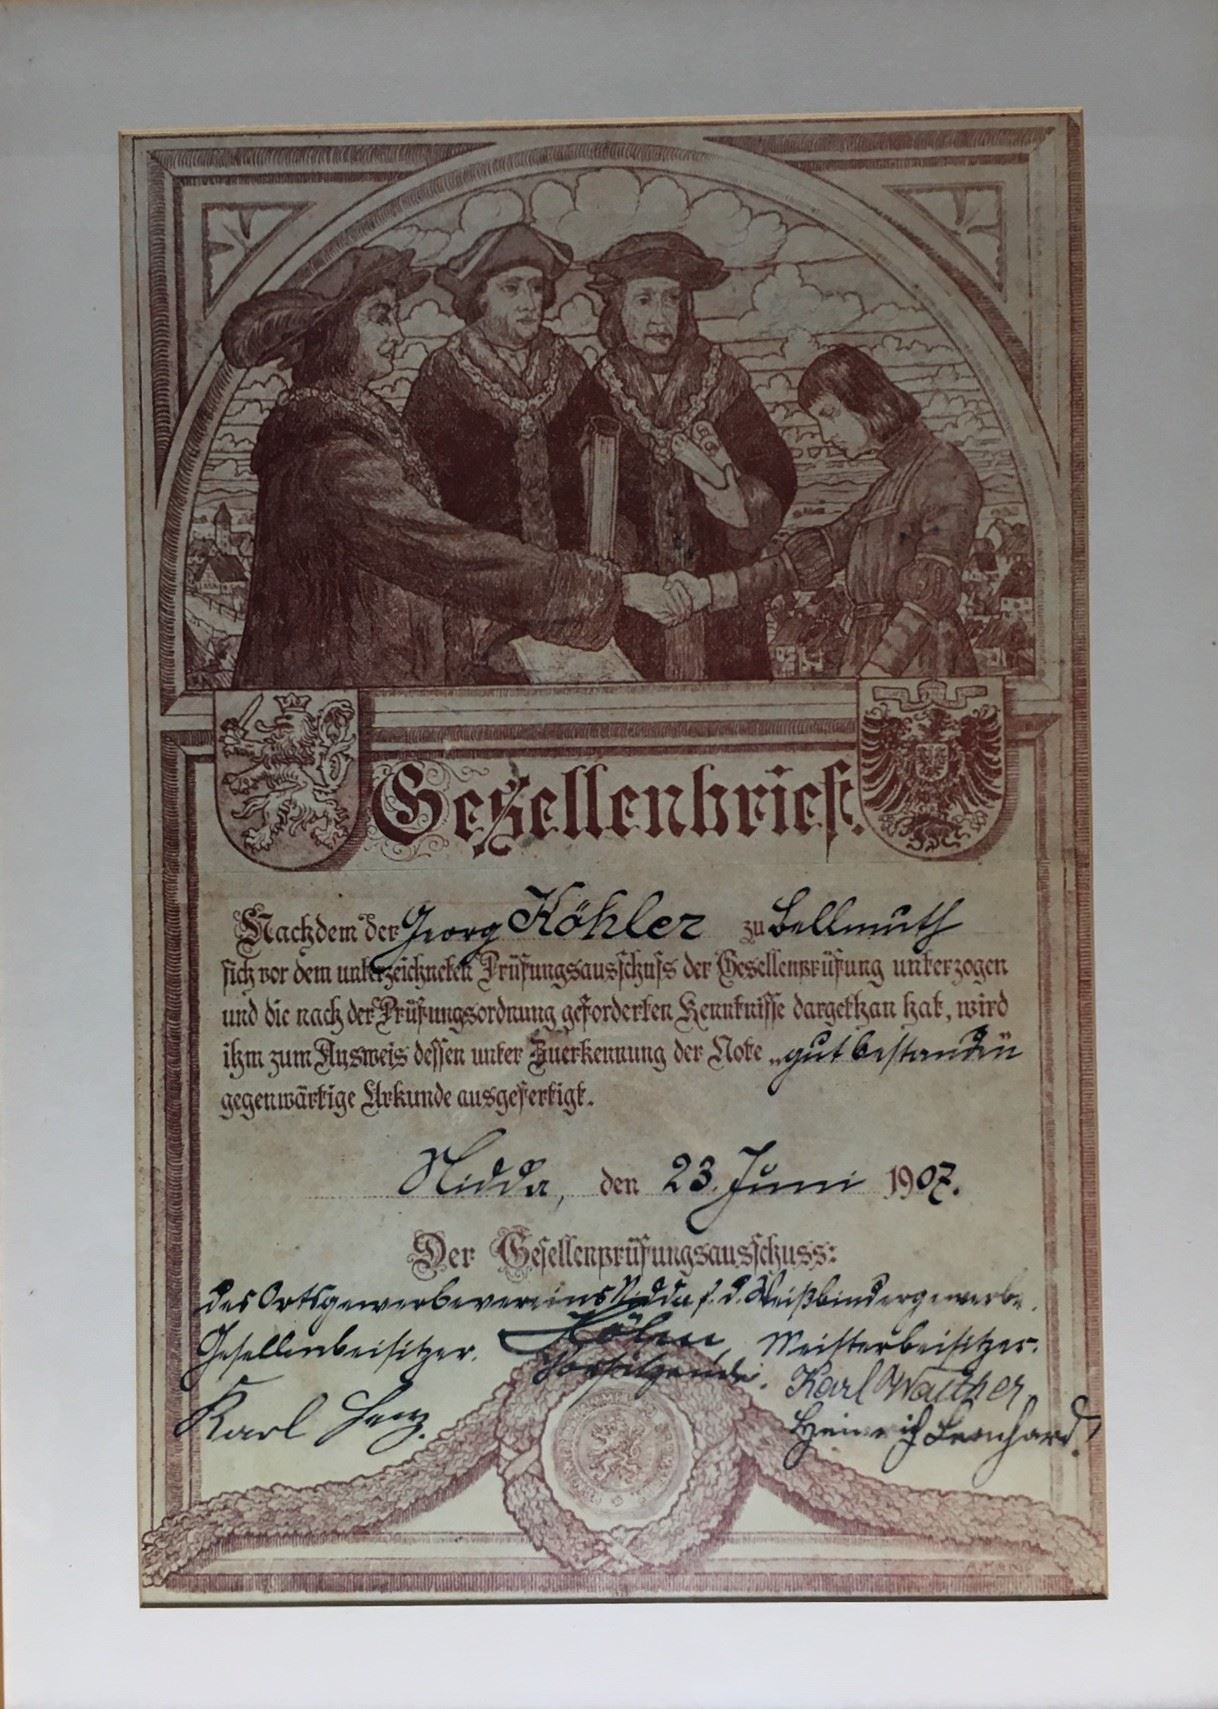 Gesellenbrief.
Nachdem der Georg Köhler zu Bellmuth
sich vor dem unterzeichneten Prüfungsausschuss der Gesellenprüfung unterzogen
und die nach der Prüfungsordnung geforderten Kenntnisse dargethan hat, wird
ihm zum Ausweis dessen unter Zuerkennung der Note „gut bestanden"
gegenwärtige Urkunde ausgefertigt.
Nidda, den 23. Juni 1907.
Der Gesellenprüfungsausschuss:
des Ortsgewerbevereins Nidda f. d. Weißbindergewerbe.
Gesellenbeisitzer. Vorsitzender. Meisterbeisitzer.
Karl Walther
Karl Heinrich Leonhard.